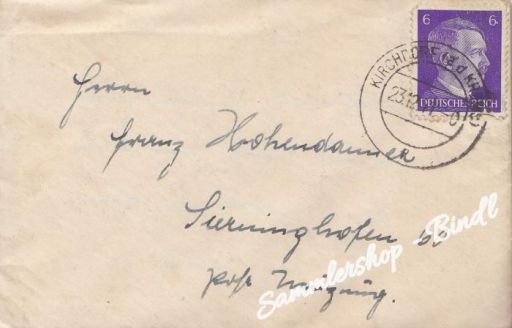 6 6
DEUTSCHES REICH
KIRCHDORF
23.12.
Herrn
Franz Hohendanner
Sierninghofen 65
post
Sammlershop - Bindl